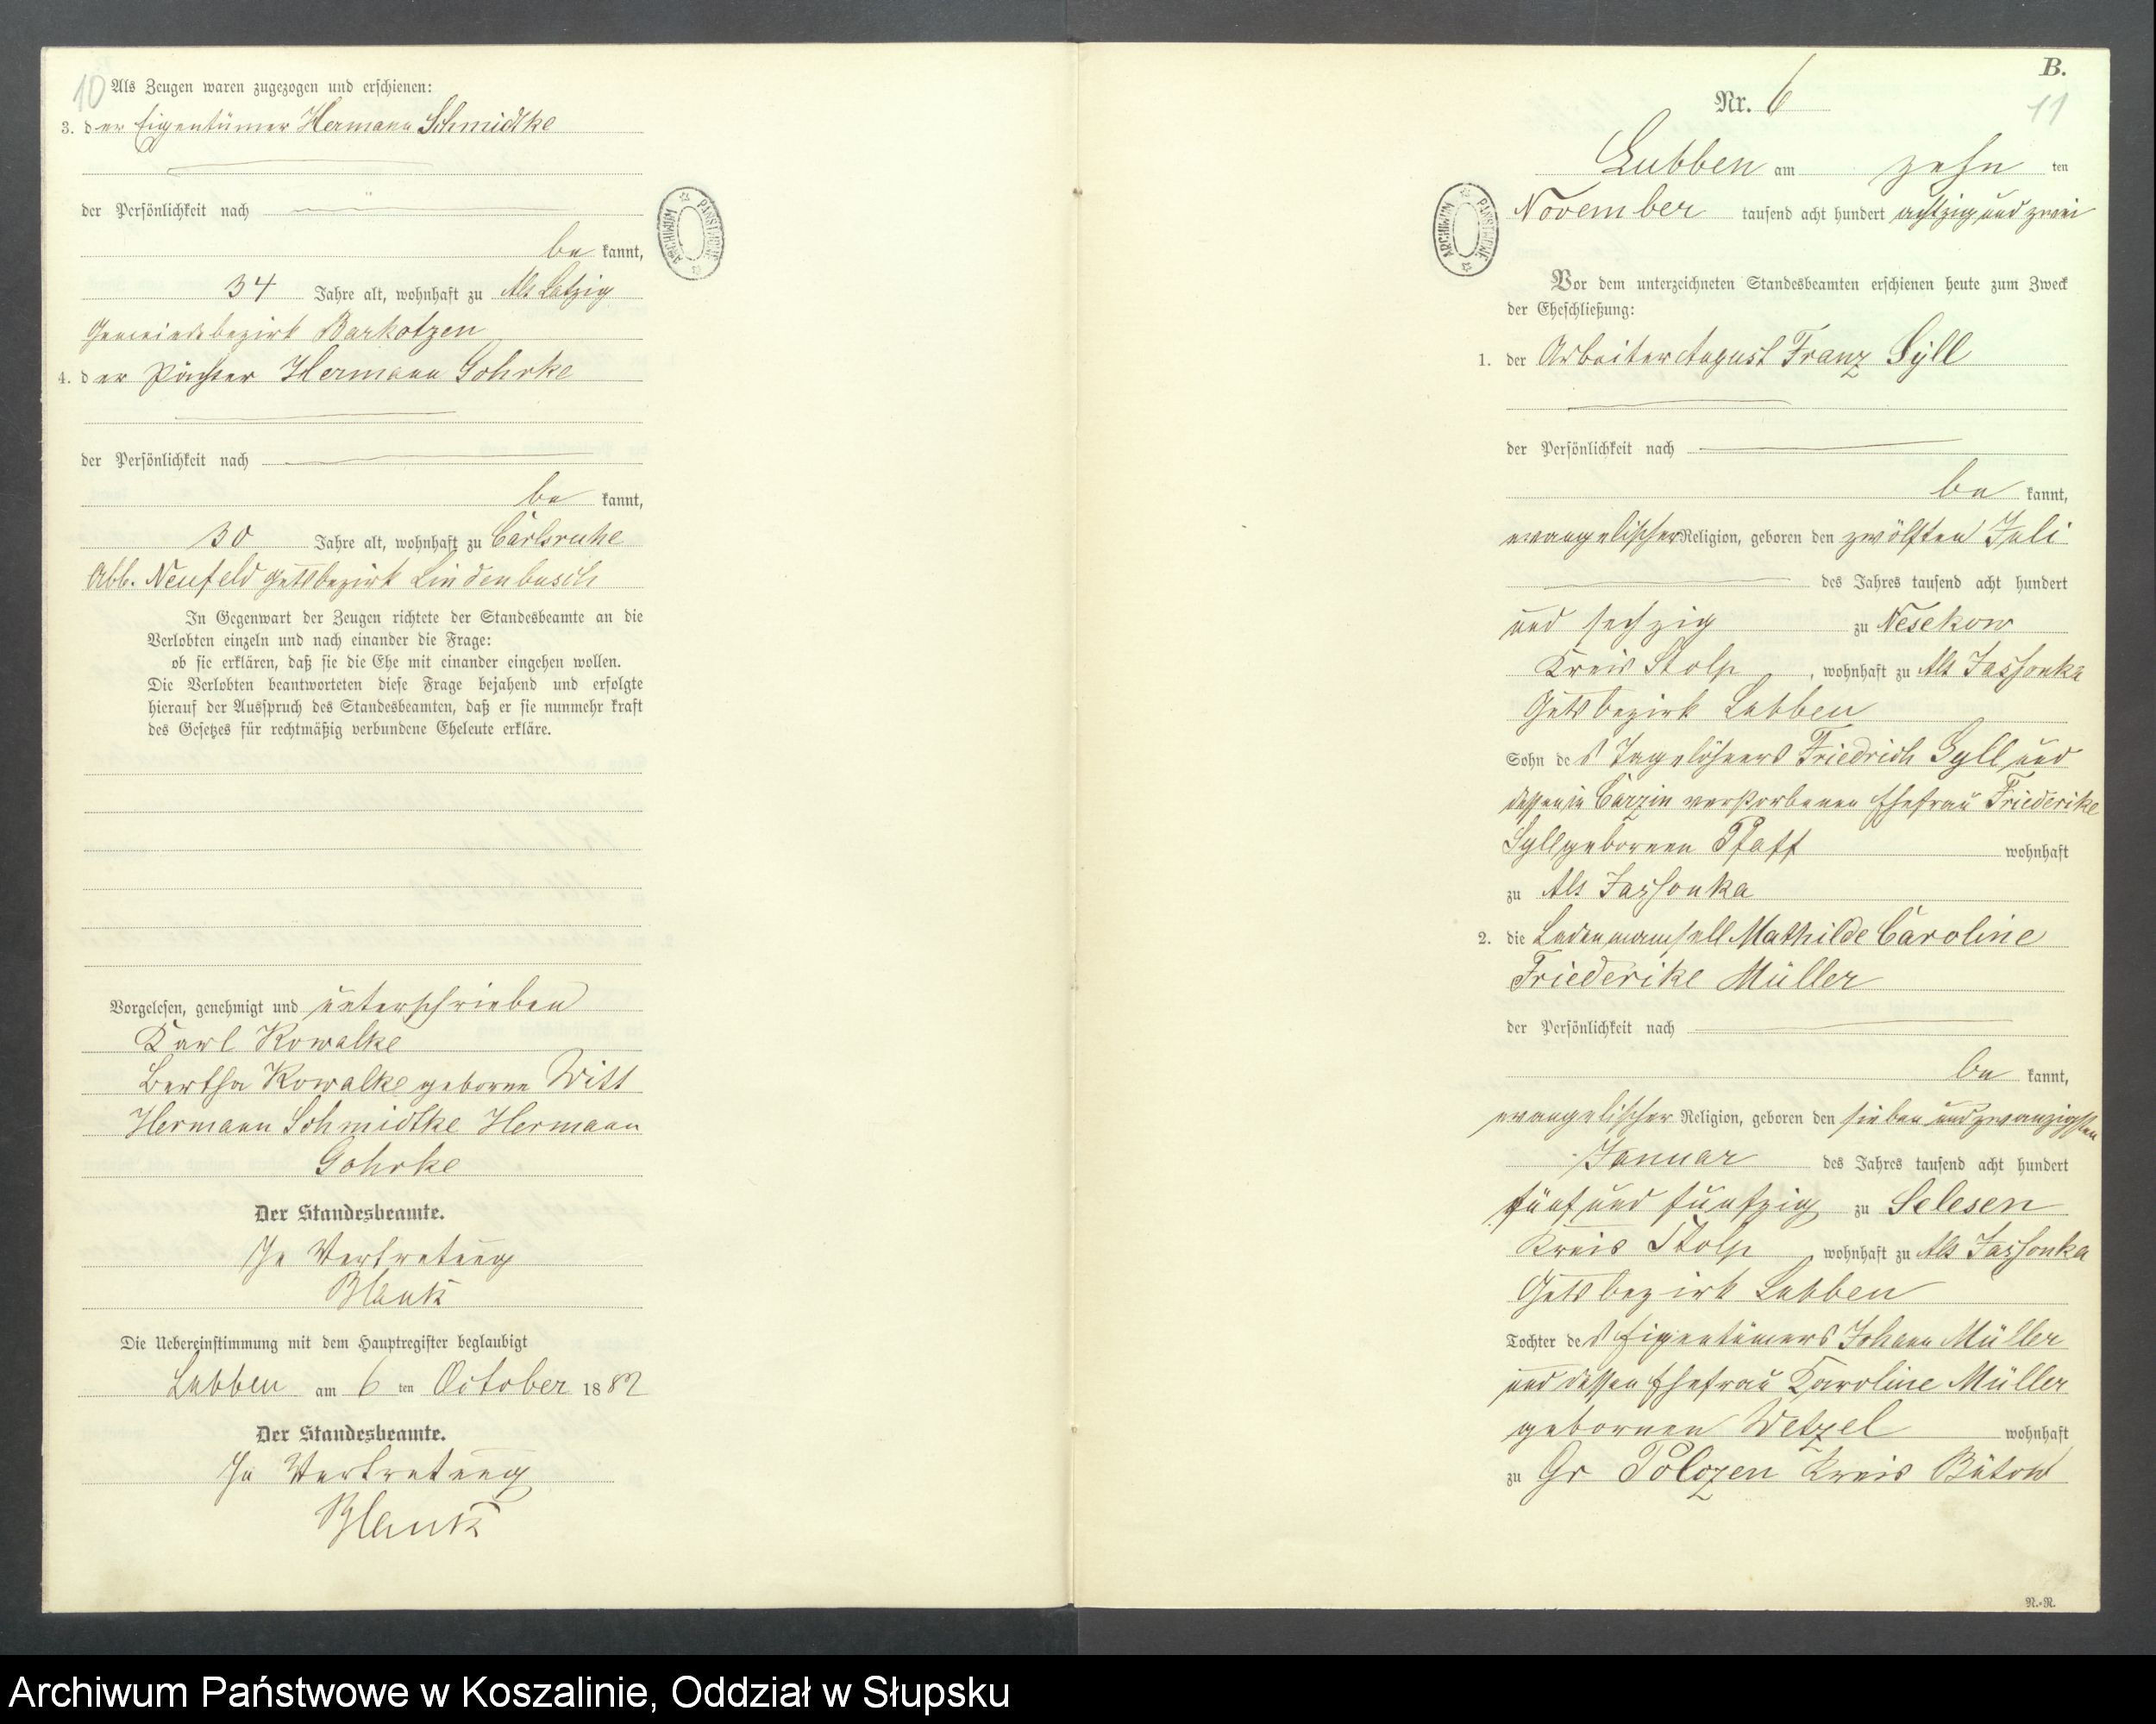 10
Als Zeugen waren zugezogen und erschienen:
3. der Eigentümer Hermann Schmidtke
der Persönlichkeit nach
be kannt,
34 Jahre alt, wohnhaft zu Alt Latzig
Gemeindebezirk Barkotzen
4. der Pächter Hermann Gohrke
der Persönlichkeit nach
be kannt,
30 Jahre alt, wohnhaft zu Carlsruhe
Abb. Neufeld Gutsbezirk Lindenbusch
In Gegenwart der Zeugen richtete der Standesbeamte an die
Verlobten einzeln und nach einander die Frage:
ob sie erklären, daß sie die Ehe mit einander eingehen wollen.
Die Verlobten beantworteten diese Frage bejahend und erfolgte
hierauf der Ausspruch des Standesbeamten, daß er sie nunmehr kraft
des Gesetzes für rechtmäßig verbundene Eheleute erkläre.
Vorgelesen, genehmigt und unterschrieben
Karl Kowalke
Bertha Kowalke geborne Witt
Hermann Schmidtke Hermann
Gohrke
Der Standesbeamte.
In Vertretung
Blank
Die Uebereinstimmung mit dem Hauptregister beglaubigt
Lubben am 6 ten October 1882
Der Standesbeamte.
In Vertretung
Blank
ARCHIWUM PAŃSTWOWE
B.
11
Nr. 6
Lubben am zehn ten
November tausend acht hundert achtzig und zwei
ARCHIWUM PAŃSTWOWE
Vor dem unterzeichneten Standesbeamten erschienen heute zum Zweck
der Eheschließung:
1. der Arbeiter August Franz Syll
der Persönlichkeit nach
be kannt,
evangelischer Religion, geboren den zwölften Juli
des Jahres tausend acht hundert
und sechzig zu Nesekow
Kreis Stolp, wohnhaft zu Alt Jassonka
Gutsbezirk Lubben
Sohn des Tagelöhners Friedrich Syll und
dessen in Carzin verstorbenen Ehefrau Friederike
Syll gebornen Pfaff wohnhaft
zu Alt Jassonka
2. die Ladenmamsell Mathilde Caroline
Friederike Müller
der Persönlichkeit nach
be kannt,
evangelischer Religion, geboren den sieben und zwanzigsten
Januar des Jahres tausend acht hundert
fünf und fünfzig zu Selesen
Kreis Stolp, wohnhaft zu Alt Jassonka
Gutsbezirk Lubben
Tochter des Eigentümers Johann Müller
und dessen Ehefrau Karoline Müller
gebornen Wetzel wohnhaft
zu Gr Polczen Kreis Bütow
N.-N.
Archiwum Państwowe w Koszalinie, Oddział w Słupsku